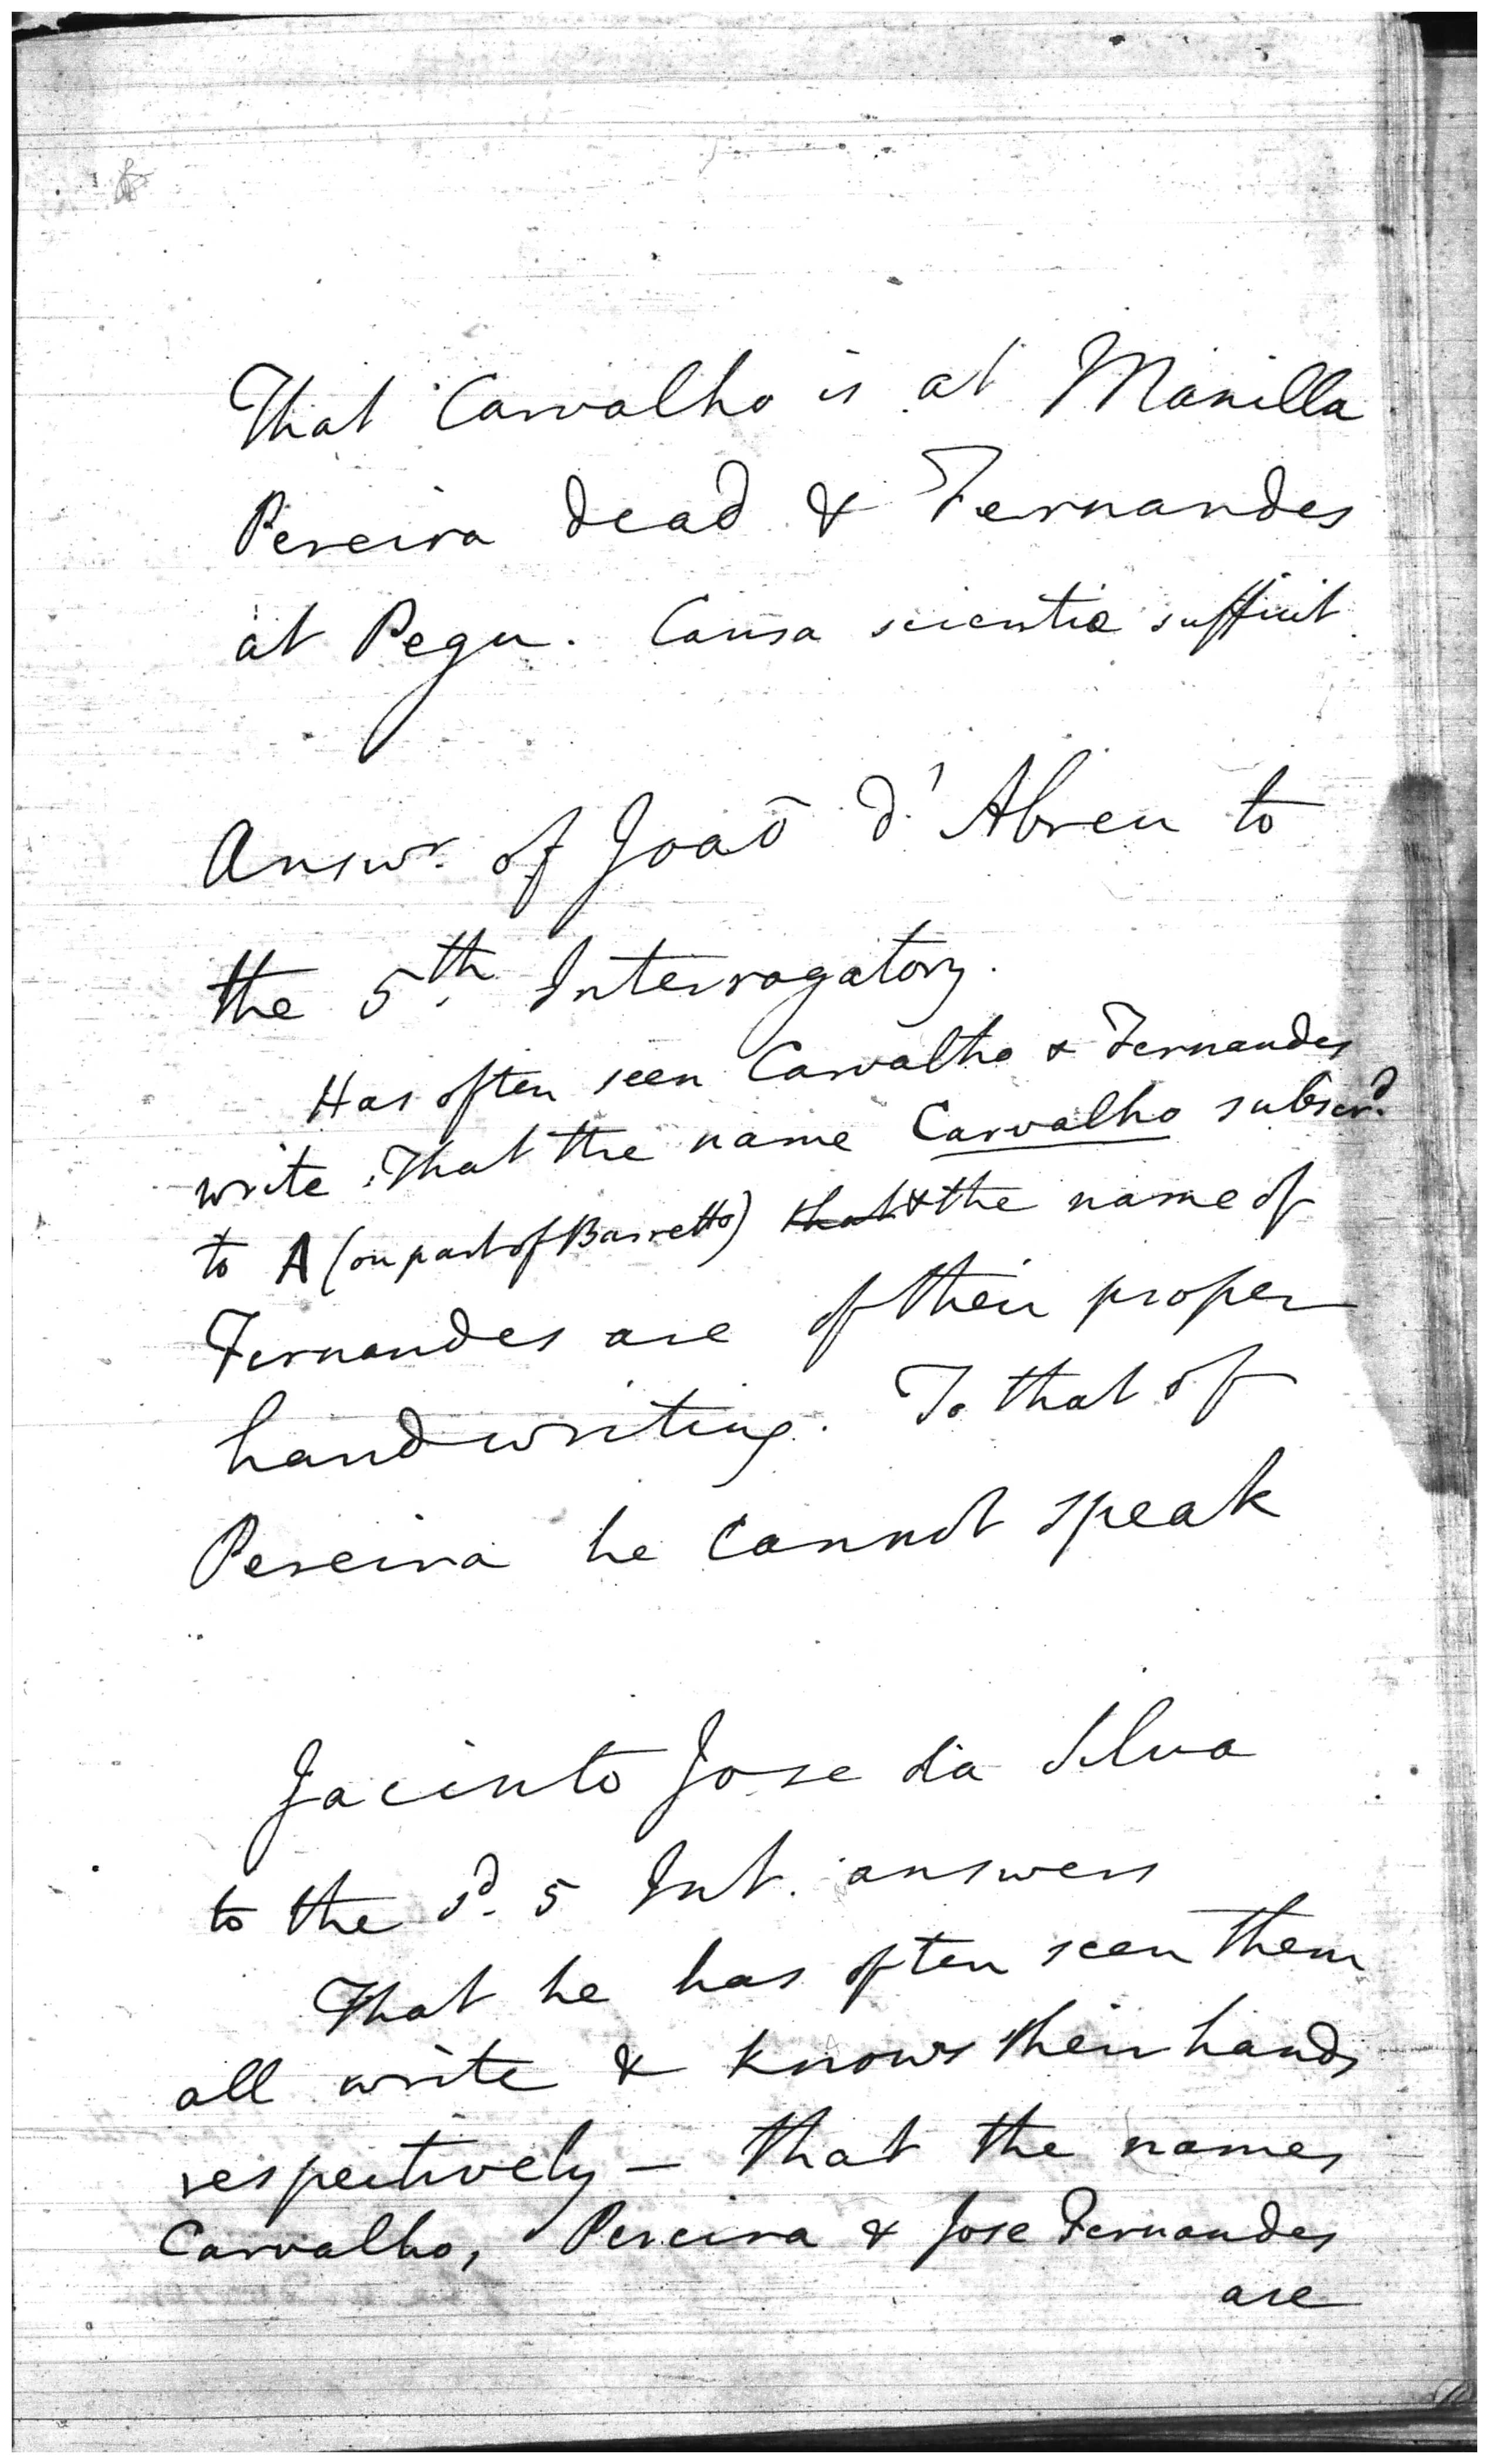 That Carvalho is at Manilla
Pereira dead & Fernandes
at Pegu. Causa scientiæ sufficit.
Answr. of Joaõ d'Abreu to
the 5th. Interrogatory.
Has often seen Carvalho & Fernandes
write. That the name Carvalho subscrd.
to A (on part of Barretto) that & the name of
Fernandes are of their proper
handwriting. To that of
Pereira he cannot speak
Jacinto Jose da Silva
to the sd. 5 Int. answers
That he has often seen them
all write & knows their hands
respectively — that the names
Carvalho, Pereira & Jose Fernandes
are